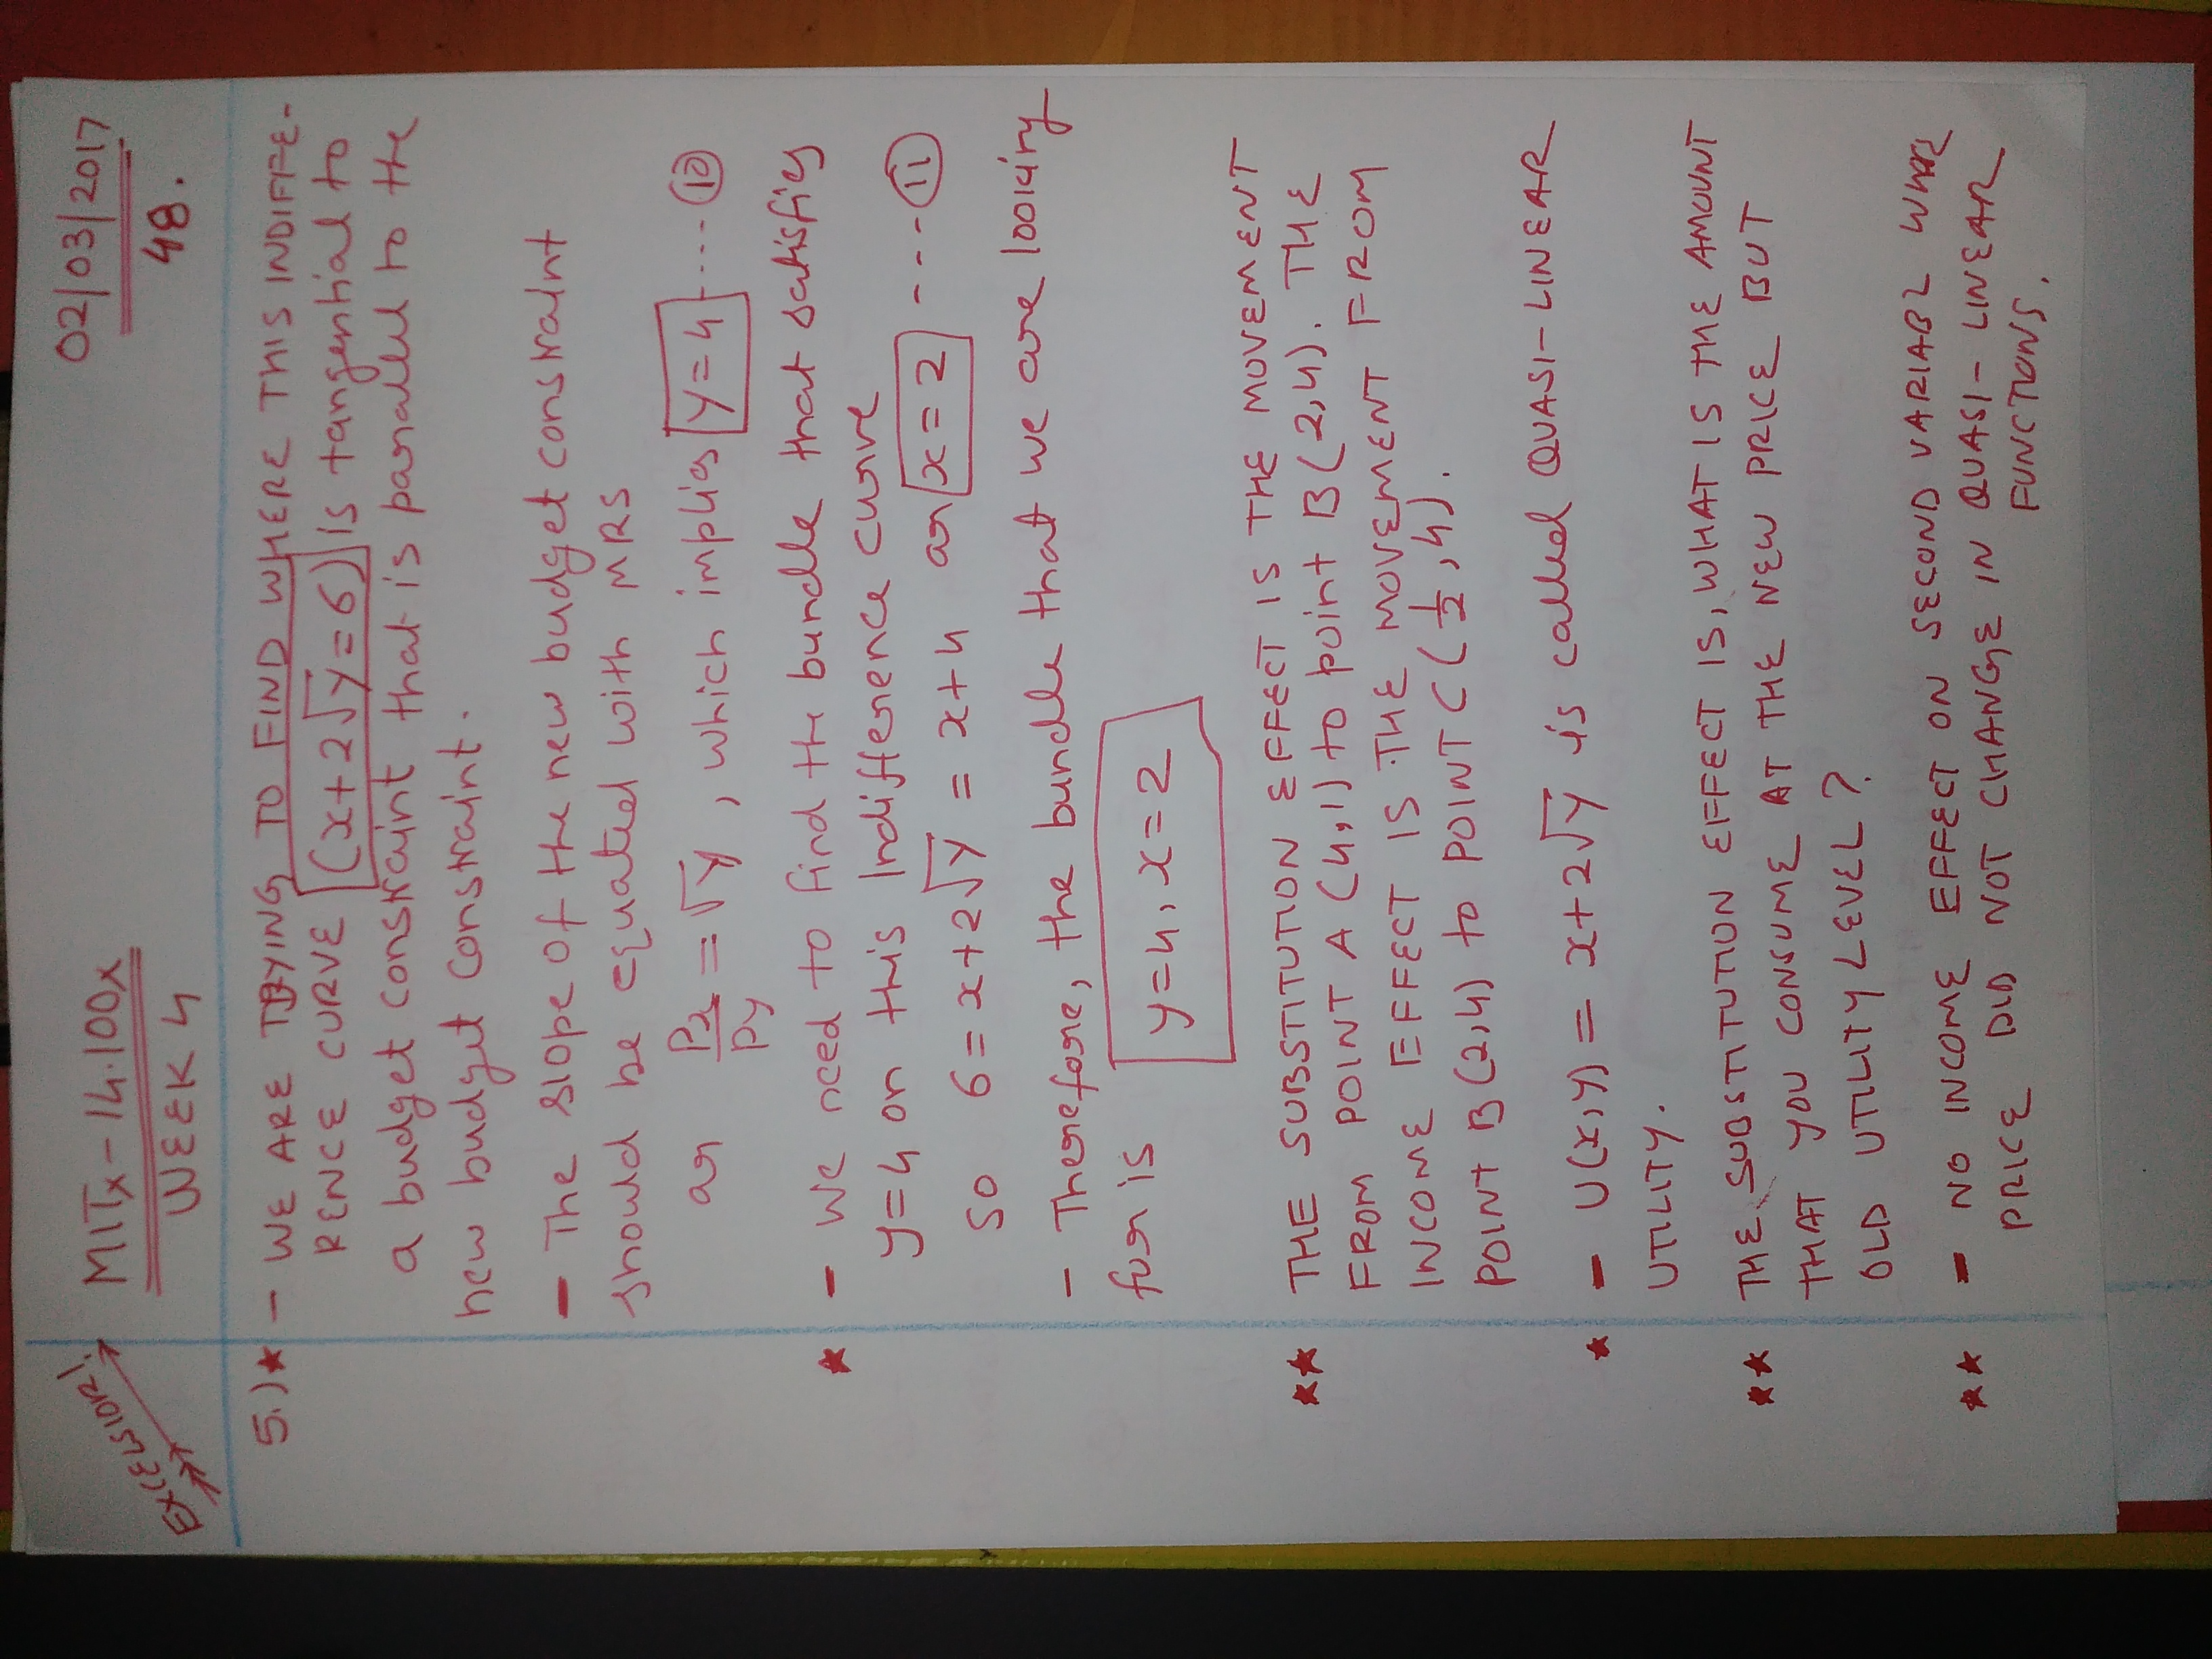 EXCELSIOR!
MITx-14.100x
WEEK 4
02/03/2017
48.
5.) ★ - WE ARE TRYING TO FIND WHERE THIS INDIFFE-
RENCE CURVE (x+2√y=6) is tangential to
a budget constraint that is parallel to the
new budget constraint.
- The slope of the new budget constraint
should be equated with MRS
or Px/Py = √y, which implies y=4 ---- ⑩
★ - We need to find the bundle that satisfies
y=4 on this Indifference curve
so 6=x+2√y = x+4 or x=2 ---- ⑪
- Therefore, the bundle that we are looking
for is y=4, x=2
★★ THE SUBSTITUTION EFFECT IS THE MOVEMENT
FROM POINT A (4,1) to point B(2,4). THE
INCOME EFFECT IS THE MOVEMENT FROM
POINT B(2,4) to POINT C(1/2,4).
★ - U(x,y) = x+2√y is called QUASI-LINEAR
UTILITY.
★★ THE SUBSTITUTION EFFECT IS, WHAT IS THE AMOUNT
THAT YOU CONSUME AT THE NEW PRICE BUT
OLD UTILITY LEVEL?
★★ - NO INCOME EFFECT ON SECOND
PRICE DID NOT CHANGE IN QUASI-LINEAR
FUNCTIONS.